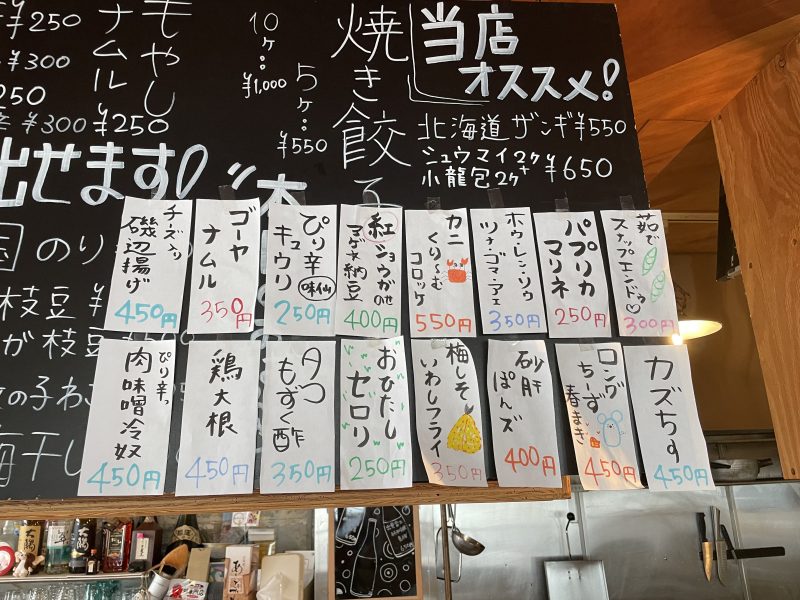 当店
オススメ!
北海道ザンギ ¥550
シュウマイ2ケ+
小龍包2ケ ¥650
焼き餃子
5ケ…
¥550
10ケ…
¥1,000
もやし
ナムル
¥250
¥250
¥300
250
¥300
出せます!
のり
枝豆 ¥
が枝豆
の子わさ
梅干し
茹で
スナップエンドゥ
300円
パプリカ
マリネ
250円
ホウレンソウ
ツナ・ゴマ・アエ
350円
カニ
くりーむ
コロッケ
550円
紅ショウガのせ
マグ✕納豆
400円
ぴり辛
キュウリ
味仙
250円
ゴーヤ
ナムル
350円
チーズ入り
磯辺揚げ
450円
カズちー
450円
ロング
ちーず
春まき
450円
砂肝
ぽんズ
400円
梅しそ
いわしフライ
350円
おひたし
セロリ
250円
タコ
もずく酢
350円
鶏大根
450円
ぴり辛っ
肉味噌冷奴
450円